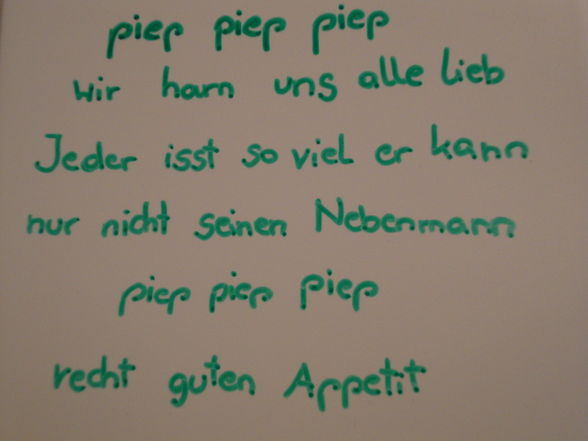 piep piep piep
wir harn uns alle lieb
Jeder isst so viel er kann
nur nicht seinen Nebenmann
piep piep piep
recht guten Appetit